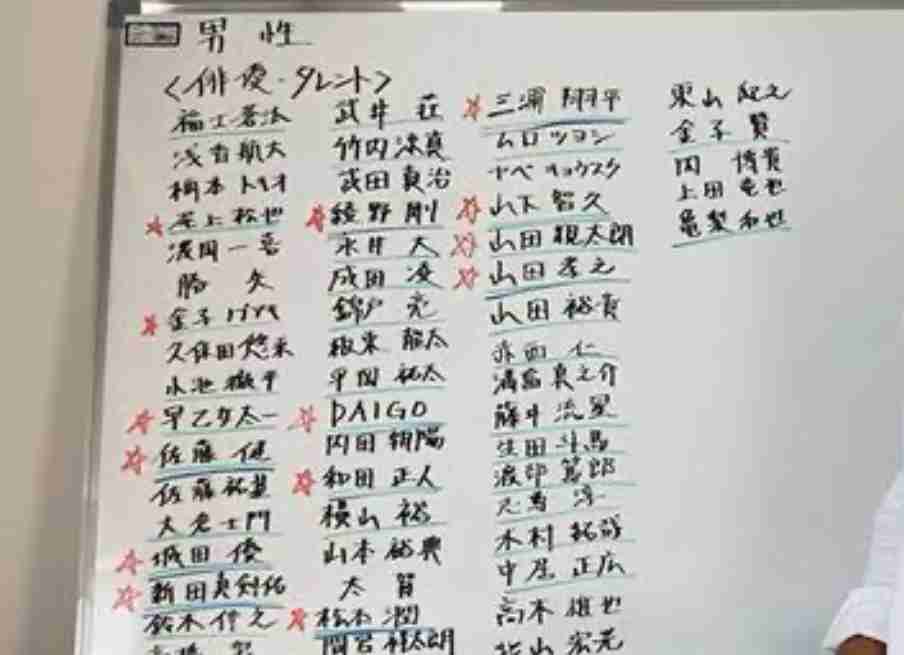 男 性
<俳優・タレント>
福士蒼汰
浅香航大
橋本トオオ
尾上松也
濱田一喜
勝 矢
金子ノブアキ
久保田悠来
小池徹平
早乙女太一
佐藤 健
佐藤祐基
大倉士門
城田 優
新田真剣佑
鈴木伸之
武井 荘
竹内涼真
武田真治
綾野 剛
永井 大
成田 凌
錦戸 亮
板東龍太
平岡祐太
DAIGO
内田朝陽
和田 正人
横山 裕
山本裕典
大智
松本 潤
間宮祥太朗
三浦 翔平
ムロツヨシ
ヤベキョウスケ
山下 智久
山田親太朗
山田孝之
山田裕貴
赤西 仁
満島真之介
藤井 流星
生田斗馬
渡部篤郎
木村 拓哉
中居 正広
高木 雄也
東山 紀之
金子 賢
内 博貴
上田 竜也
亀梨和也